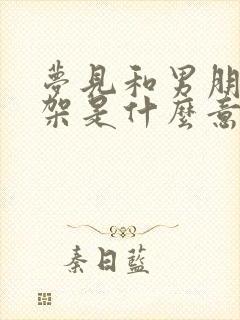 夢見和男朋
架是什麼意
秦日藍